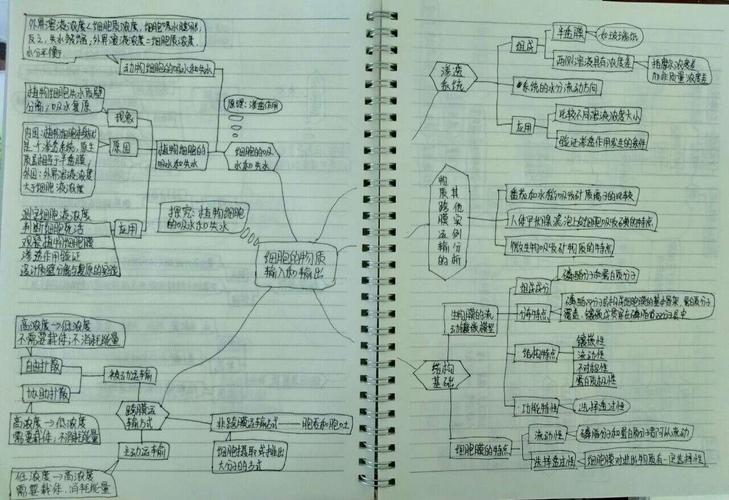 外界溶液浓度<细胞质浓度,细胞吸水膨胀,
反之,失水皱缩,外界溶液浓度=细胞质浓度,
水分平衡
动物细胞的吸水和失水
原理:渗透作用
植物细胞失水质壁
分离,吸水复原
现象
原因
植物细胞的
吸水和失水
细胞的吸
水和失水
是一个渗透系统,原生
质层相当于半透膜,
外因:外界溶液浓度
大于细胞液浓度
探究:植物细胞
的吸水和失水
测定细胞液浓度
判断细胞死活
观察植物细胞膜
渗透作用验证
设计质壁分离与复原的实验
应用
细胞的物质
输入和输出
高浓度→低浓度
不需要载体,不消耗能量
自由扩散
被动运输
协助扩散
高浓度→低浓度
需要载体,不消耗能量
跨膜运
输方式
主动运输
低浓度→高浓度
需要载体,消耗能量
非跨膜运输方式
胞吞和胞吐
细胞摄取或排出
大分子的方式
渗透
系统
组成
半透膜
水玻璃纸
两侧溶液具有浓度差
指摩尔浓度差
而非质量浓度差
系统的水分流动方向
应用
比较不同溶液浓度大小
验证渗透作用发生的条件
物质跨膜运输的
其他实例分析
番茄和水稻吸收矿质离子的比较
人体甲状腺滤泡上皮细胞吸碘的特点
微生物吸收矿物质的特点
结构
基础
生物膜的流
动镶嵌模型
组成成分
磷脂分子和蛋白质分子
分布特点
磷脂双分子层构成细胞膜的基本骨架,蛋白质分子
覆盖、镶嵌或贯穿在磷脂双分子层中
结构特点
镶嵌性
流动性
不对称性
蛋白质极性
功能特性
选择透过性
细胞膜的特点
流动性
磷脂分子和蛋白质分子都可以流动
选择透过性
细胞膜对进出物质有一定选择性